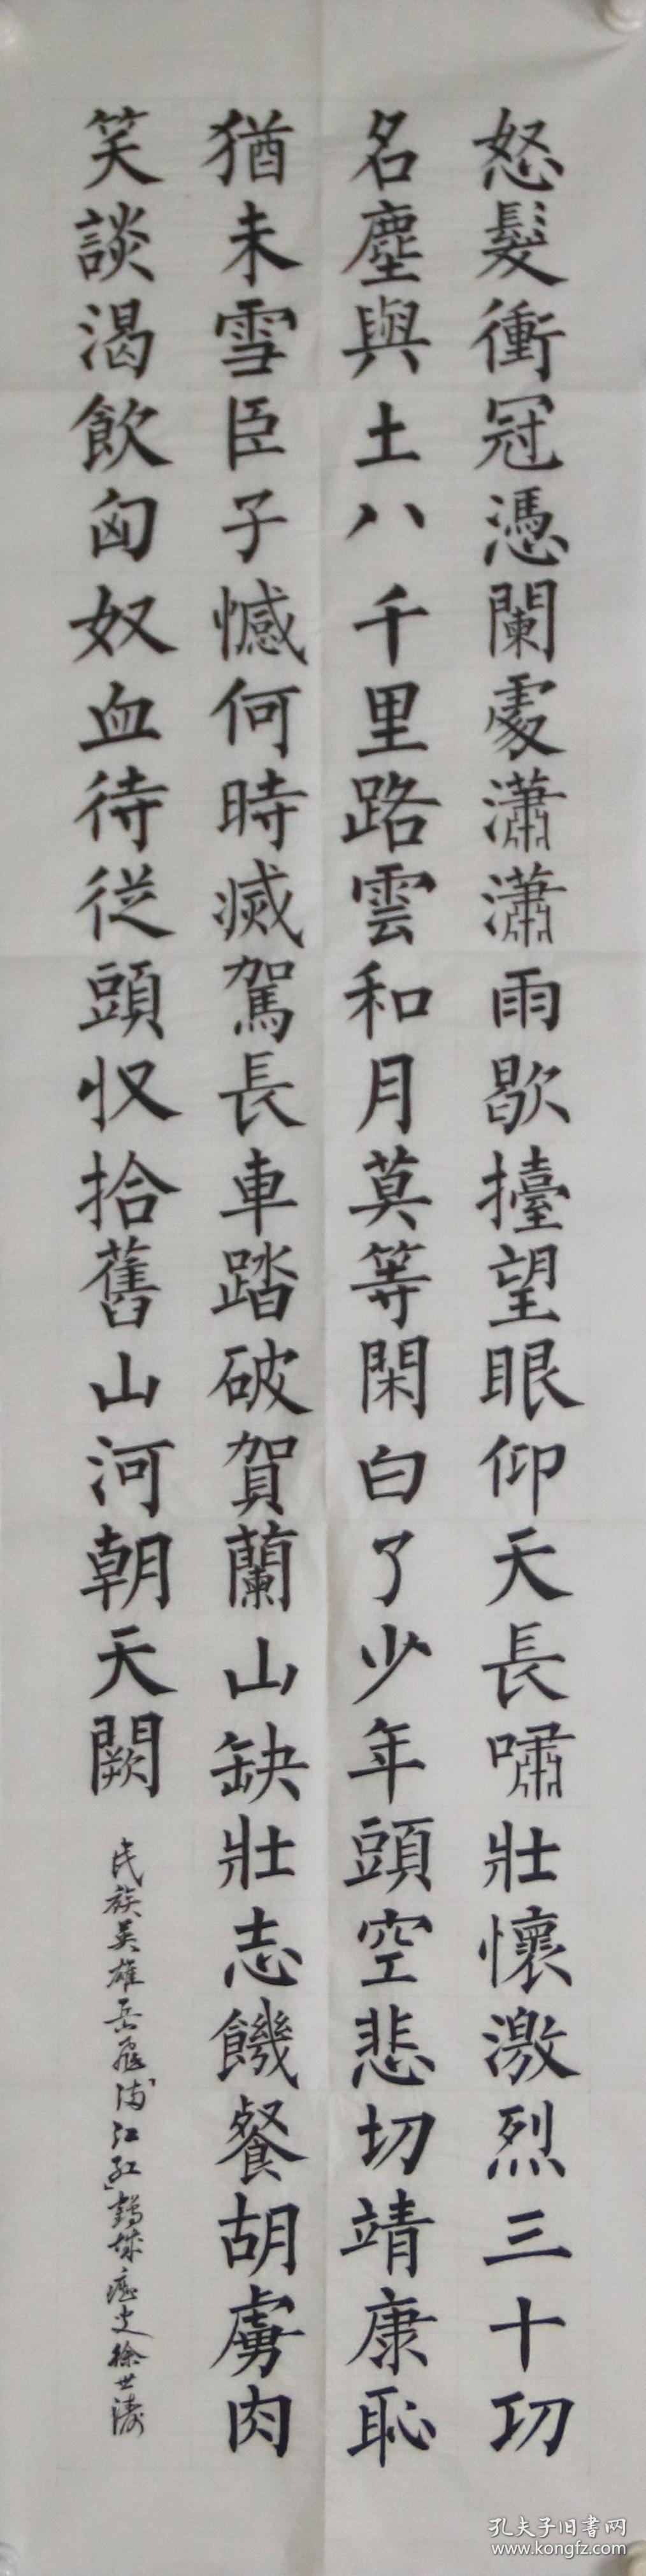 怒髮衝冠憑闌處瀟瀟雨歇擡望眼仰天長嘯壯懷激烈三十功
名塵與土八千里路雲和月莫等閑白了少年頭空悲切靖康恥
猶未雪臣子憾何時滅駕長車踏破賀蘭山缺壯志饑餐胡虜肉
笑談渴飲匈奴血待従頭収拾舊山河朝天闕
民族英雄岳飛「满江紅」鶴城徐世濤
孔夫子旧書网
www.kongfz.com